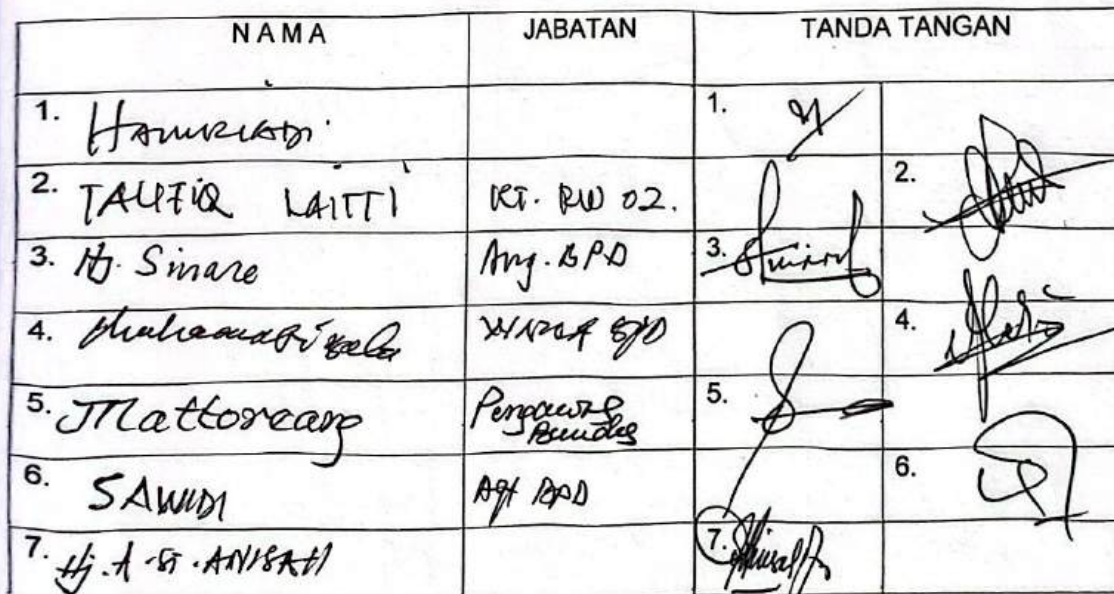 NAMA JABATAN TANDA TANGAN
1. HAMRIADI 1.
2. TAUFIQ LAITTI KT. RW 02. 2.
3. Hj. Sinare Ang. BPD 3.
4. 4.
5. Mattoreang Pengawas Bumdes 5.
6. SAWIDI Agt BPD 6.
7. Hj. A. St. ANISAH 7.